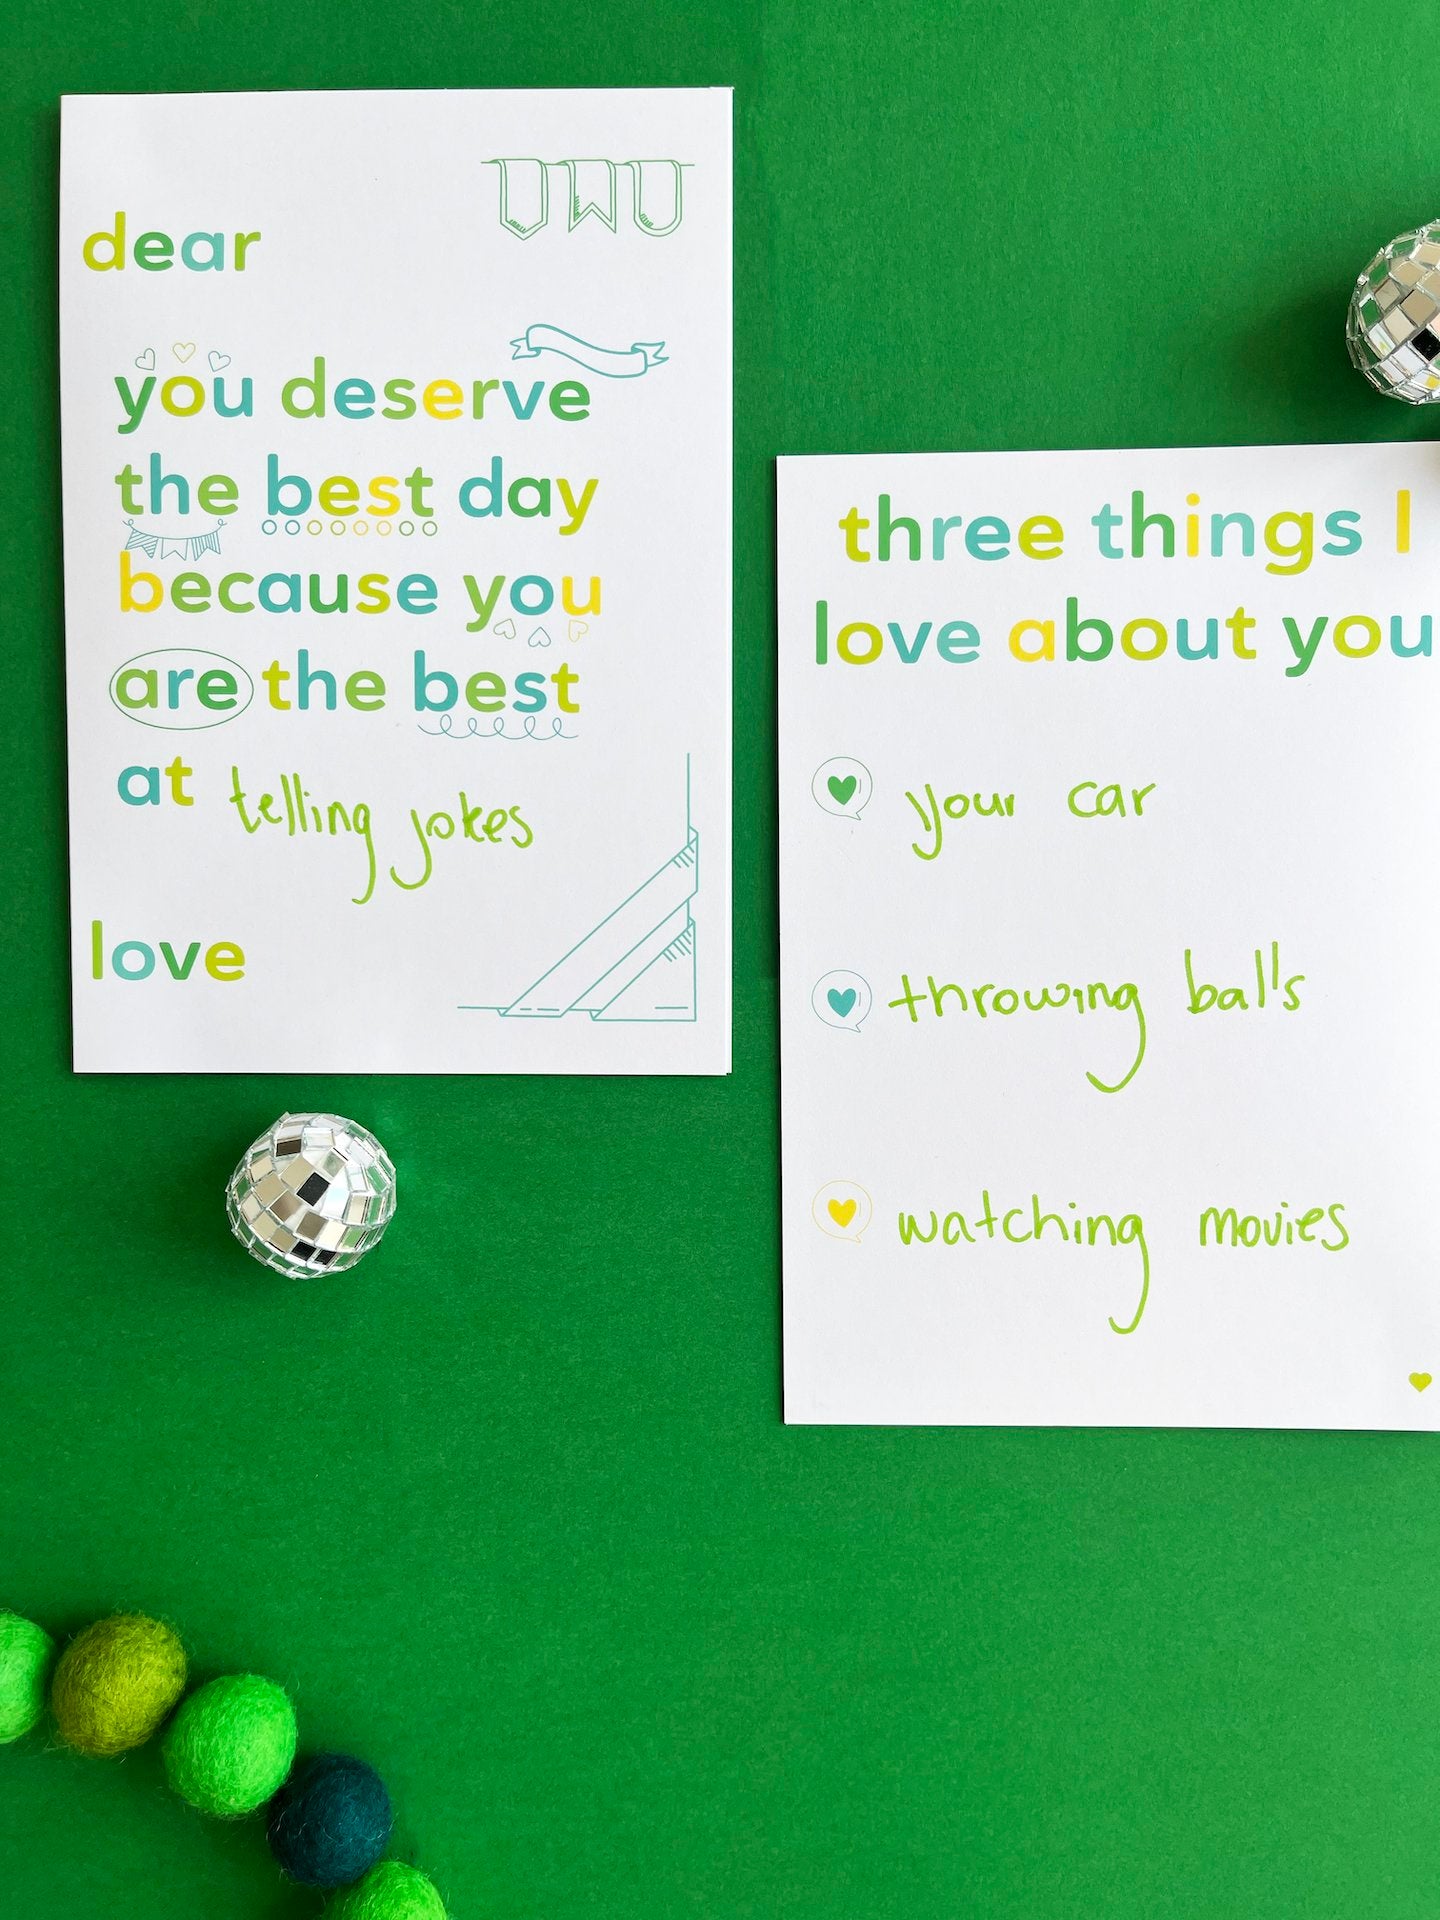 dear
you deserve
the best day
because you
are the best
at telling jokes
love
three things I
love about you
your car
throwing bal's
watching movies